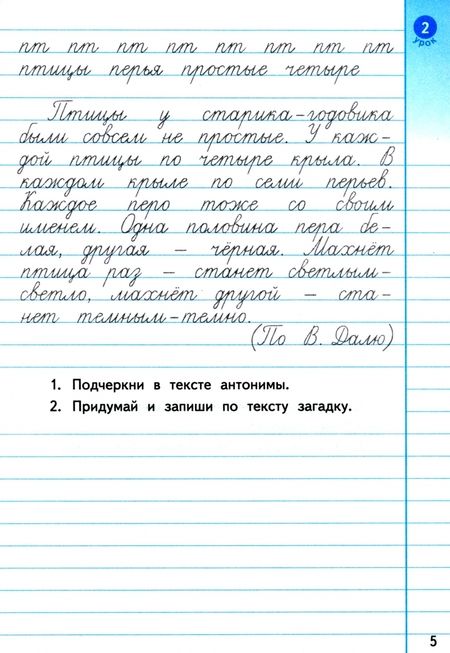 2
урок
пт пт пт пт пт пт пт пт
птицы перья простые четыре
Птицы у старика-годовика
были совсем не простые. У каж-
дой птицы по четыре крыла. В
каждом крыле по семи перьев.
Каждое перо тоже со своим
именем. Одна половина пера бе-
лая, другая – чёрная. Махнёт
птица раз – станет светлым-
светло, махнёт другой – ста-
нет темным-темно.
(По В. Далю)
1. Подчеркни в тексте антонимы.
2. Придумай и запиши по тексту загадку.
5